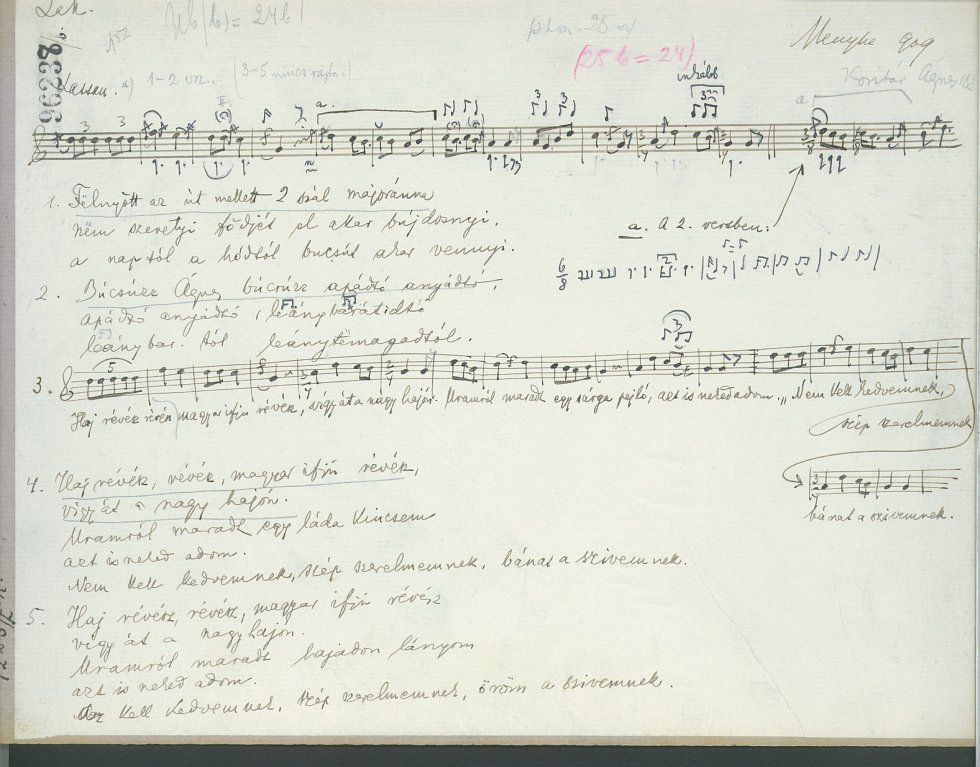 Lassan. a) 1-2 vsz. (3-5 nincs rajta.)
Phon. 25
(25 b = 24)
Menyhe 909
96238
inkább
1. Félnyőtt az út mellett 2 szál majoránna
ném szeretyi fődjét el akar bújdosnyi.
a naptól a hódtól bucsút akar vennyi.
a. A 2. versben:
2. Búcsúzz Ágnes búcsúzz apádtó anyádtó,
apádtó anyádtó, leánybarátidtó
leánybar. tól leánytémagadtól.
3. Haj révék révén magyar ifjú révék, vigy áta nagy hajón. Uramról maradt egy sárga pejló, azt is neked adom. „Nem kell kedvemnek,
szép szerelmemnek
bánat a szivemnek.
4. Haj révék, révék, magyar ifjú révék,
vigy át a nagy hajón.
Uramról maradt egy láda kincsem
azt is neked adom.
Nem kell kedvemnek, szép szerelmemnek, bánat a szivemnek.
5. Haj révész, révész, magyar ifjú révész
vigy át a nagy hajón.
Uramról maradt hajadon lányom
azt is neked adom.
Az kell kedvemnek, szép szerelmemnek, öröm a szivemnek.